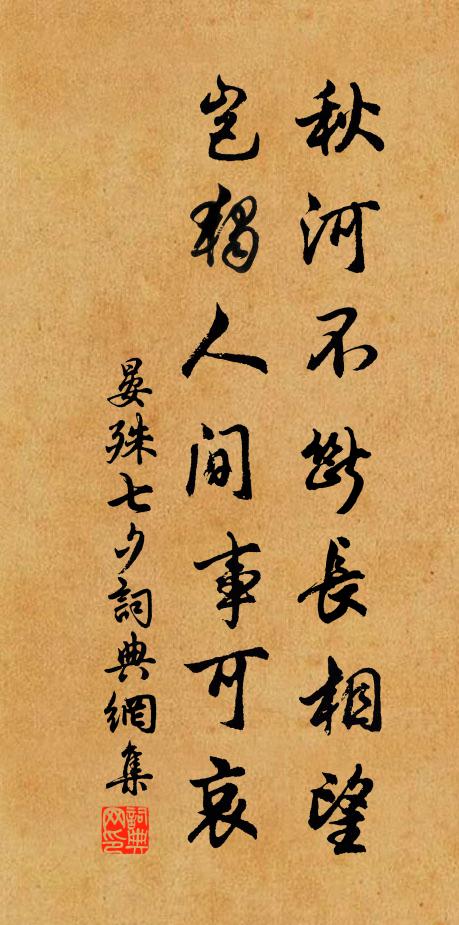 秋河不斷長相望
豈獨人間事可哀
晏殊七夕詞典網集
詞典网印